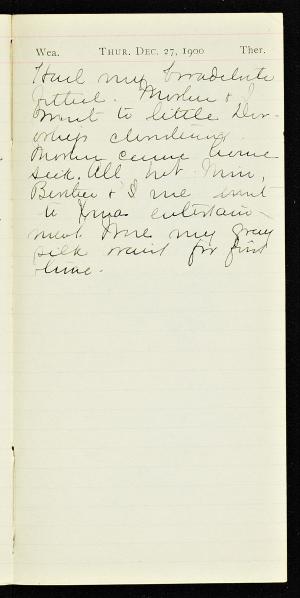 Wea. THUR. DEC. 27, 1900 Ther.
Had my broadcloth
fitted. Mother & I
went to little Dor-
othy's
Mother came home
sick. All but Mrs,
Bertie & I
to Xmas entertain-
ment. Wore my gray
silk waist for first
time.